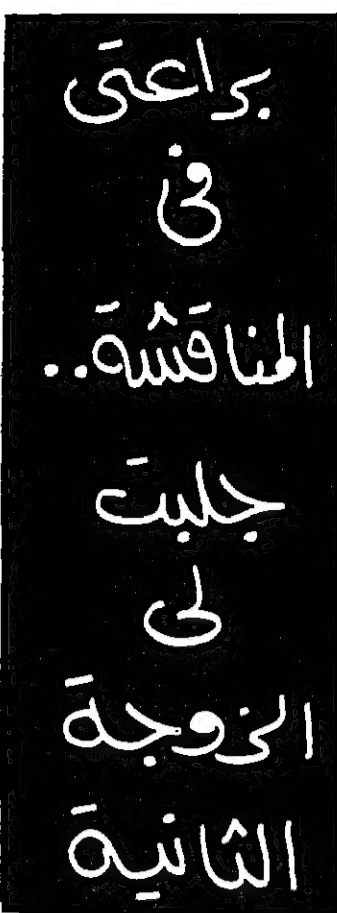 براعتى
فى
المناقشة..
جلبت
لى
الزوجة
الثانية